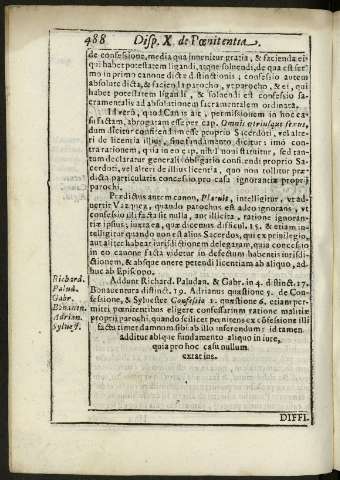 488 Disp. X. de Pœnitentia.
de confessione, media qua invenitur gratia, & facienda ei
qui habet potestatem ligandi, atque solvendi, de qua est ser
mo in primo canone dictæ distinctionis; confessio autem
absolute dicta, & facienda parocho, ut parocho, & ei, qui
habet potestatem ligandi, & solvendi est confessio sa
cramentalis ad absolutionem sacramentalem ordinata.
Id vero, quod Canis ait, permissionem in hoc ca
su factam, abrogatam esse per cap. Omnis utriusque sexus,
dum dicitur confitendum esse proprio Sacerdoti, vel alte
ri de licentia illius, sine fundamento dicitur; imo con
tra rationem, quia in eo cap. nihil novi statuitur, sed tan
tum declaratur generalis obligatio confitendi proprio Sa
cerdoti, vel alteri de illius licentia, quo non tollitur præ
dicta particularis concessio pro casu ignorantiæ proprij
parochi.
Prædictus autem canon, Placuit, intelligitur, ut ad
vertit Vazquez, quando parochus est adeo ignorans, ut
confessio illi facta sit nulla, aut illicita, ratione ignoran-
tiæ ipsius, juxta ea, quæ dicemus difficul. 15. & etiam in-
telligitur, quando non est alius Sacerdos, qui ex privilegio,
aut aliter habeat jurisdictionem delegatam, quia concessio
in eo canone facta videtur in defectum habentis jurisdi-
ctionem, & absque onere petendi licentiam ab aliquo, ad-
huc ab Episcopo.
Richard.
Palud.
Gabr.
Bonaven.
Adrian.
Sylvest.
Addunt Richard. Paludan. & Gabr. in 4. distinct. 17.
Bonaventura distinct. 19. Adrianus quæstione 5. de Con-
fessione, & Sylvester Confessio 1. quæstione 6. etiam per-
mitti pœnitentibus eligere confessarium ratione malitiæ
proprij parochi, quando scilicet pœnitens ex cõfessione illi
facta timet damnum sibi ab illo inferendum: id tamen
additur absque fundamento aliquo in iure,
quia pro hoc casu nullum
extat ius.
DIFFI-